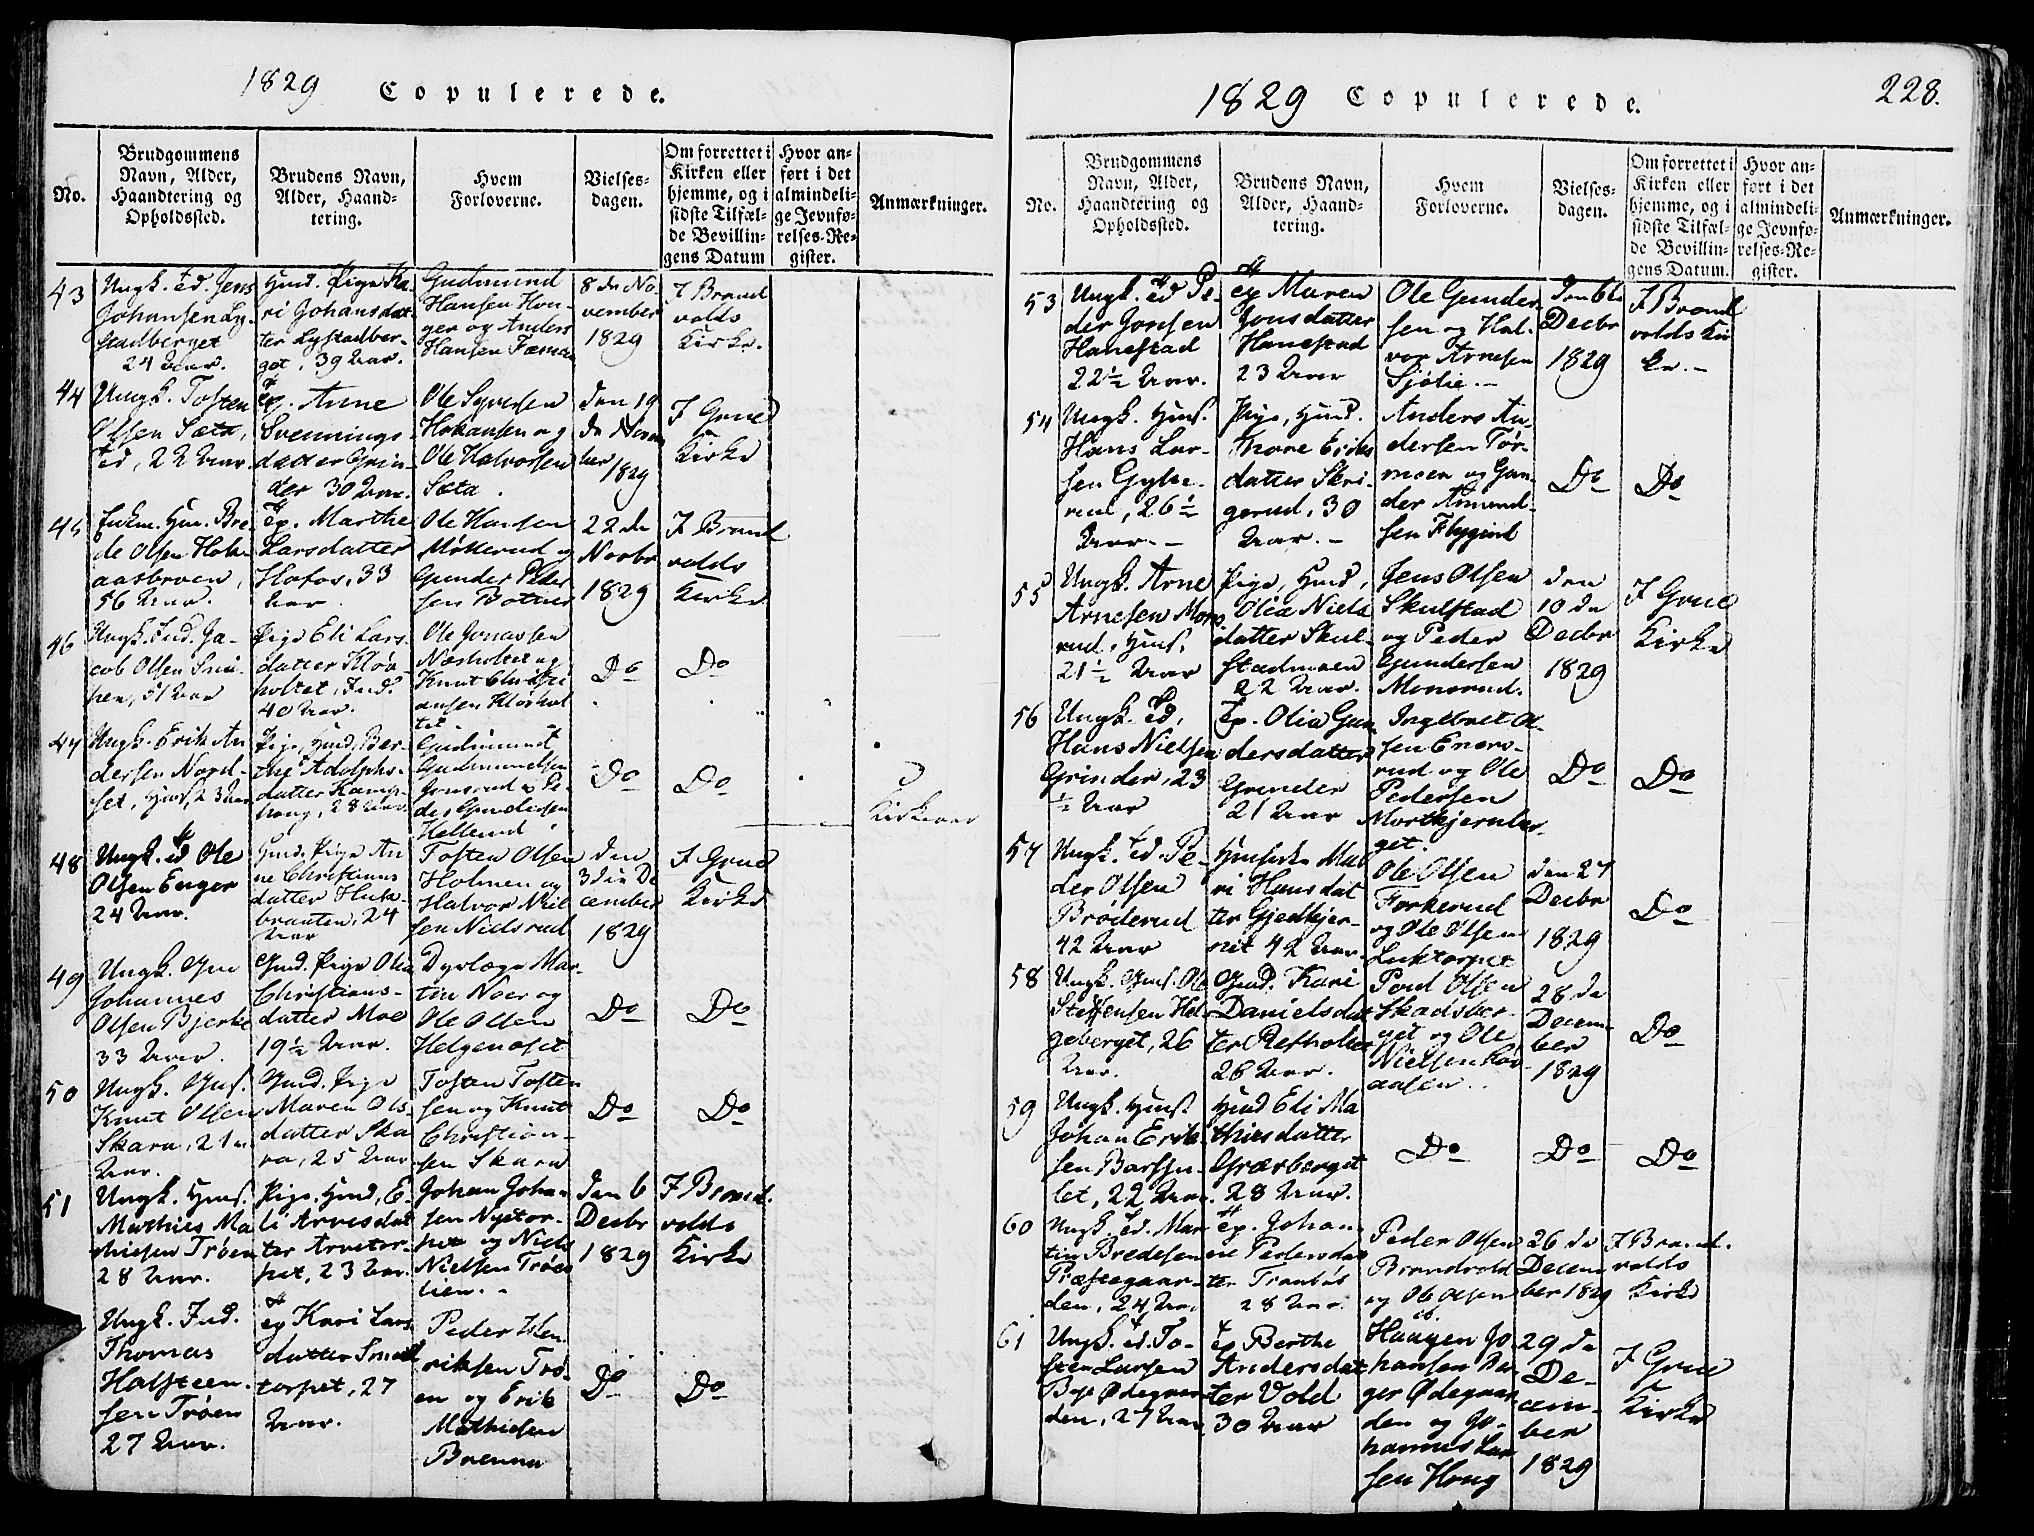 1829 Copulerede.
No.
Brudgommens
Navn, Alder,
Haandtering og
Opholdssted.
Brudens Navn,
Alder, Haand-
tering.
Hvem
Forloverne.
Vielses-
dagen.
Om forrettet i
Kirken eller
hjemme, og i
sidste Tilfæl-
de Bevillin-
gens Datum
Hvor an-
ført i det
almindeli-
ge Jevnfø-
relses-Re-
gister.
Anmærkninger.
43
Ungk. Ed. Jens
Johansen Ly-
stadberget
24 Aar.
Huusd. Pige Ka-
ri Johansdat-
ter Lystadber-
get, 39 Aar.
Gudmund
Hansen Hou-
ger og Anders
Hansen
8 de No-
vember
1829
I Brand
volds
Kirke.
44
Ungk. Tosten
Olsen Sæta,
Ed, 22 Aar.
Ep. Anne
Svennings-
datter Grin-
der 30 Aar.
Ole Syversen
Hokansen og
Ole Halvorsen
Sæta.
den 19
de Novem
ber 1829
I Grue
Kirke
45
Enkm. Huu. Bre-
de Olsen
56 Aar.
Ep. Marthe
Larsdatter
Hofos, 33
Aar.
Ole Hansen
Møkkerud og
Gunder Peder
sen Botner
22 de
Novbr
1829
I Brand
volds
Kirke
46
Ungk. Ind. Ja-
cob Olsen Sni-
pen, 51 Aar
Pige Eli Lars
datter Kløv
holtet, Ind.
40 Aar.
Ole Jonassen
Næsholtet og
Knut Christi
ansen Kløvhol
tet.
Do
Do
47
Ungk. Erik An
dersen Nord-
set, Huus, 23 Aar
Pige, Huusd. Ber-
the Adolphs-
datter Kamp-
houg, 28 Aar.
Gudmund
Gudmundsen
og Pe-
der Gundersen
Hellerud.
Do
Do
Kirkener
48
Ungk. Ed Ole
Olsen Enger
24 Aar.
Huusd. Pige An
ne Christians
datter
braaten, 24
Aar
Tosten Olsen
Holmen og
Halvor Niel
sen Nielsrud
den
3die De
cember
1829
I Grue
Kirke
49
Ungk. Huu
Johannes
Olsen Bjerke
33 Aar.
Huusd. Pige Olia
Christians-
datter Moe
19½ Aar.
Dyrlæge Mar-
tin Noer og
Ole Olsen
Helgenaset
Do
Do
50
Ungk. Huus.
Knut Olsen
Skara, 21
Aar.
Huusd. Pige
Maren Ols-
datter Ska
ra, 25 Aar
Tosten Tosten
sen og Knut
Christian-
sen Skara
Do
Do
51
Ungk. Huus.
Mathies Ma
thiesen Trøen
28 Aar.
Pige, Huusd, E-
li Arnesdat
ter Arnetor-
pet, 23 Aar.
Johan Joha-
sen Nytor-
pet og Niels
Nielsen Trøes
lien.
den 6
Decbr
1829
I Brand-
volds
Kirke
Ungk. Ind.
Thomas
Halsteen-
sen Trøen
27 Aar.
ep Kari Lars
datter Smed
torpet, 27
Aar.
Peder Hen
riksen Trø-
en og Erik
Mathisen
Brenna
Do
Do
1829 Copulerede.
228.
No.
Brudgommens
Navn, Alder,
Haandtering og
Opholdssted.
Brudens Navn,
Alder, Haand-
tering.
Hvem
Forloverne.
Vielses-
dagen.
Om forrettet i
Kirken eller
hjemme, og i
sidste Tilfæl-
de Bevillin-
gens Datum.
Hvor an-
ført i det
almindeli-
ge Jevnfø-
relses-Re-
gister.
Anmærkninger.
53
Ungk. Ed Pe-
der Jonsen
Hanestad
22½ Aar.
ep Maren
Jonsdatter
Hanestad
23 Aar
Ole Gunder
sen og Hal-
vor Arnesen
Sjølie.-
den 6te
Decbr
1829
I Brand
volds Kir
ke.-
54
Ungk. Huus.
Hans Lar-
sen Gylte-
rud, 26½
Aar.-
Pige, Huusd.
Thore Eriks
datter Skri-
gerud, 30
Aar.-
Anders An-
dersen Tør-
moen og Gun
der Amund-
sen Flygind
Do
Do
55
Ungk. Arne
Arnesen Mons
rud, Huus.
21½ Aar
Pige, Huusd,
Olia Niels
datter Skul-
stadmoen
22 Aar.
Jens Olsen
Skulstad
og Peder
Gundersen
Monsrud.
den
10 de
Decbr
1829
I Grue
Kirke
56
Ungk. Ed,
Hans Nielsen
Grinder, 23
½ Aar
Ep. Olia Gun
dersdatter
Grinder
21 Aar
Ingebret Ol
sen Eners-
rud og Ole
Pedersen
Mortkjernber-
get.
Do
Do
57
Ungk. Ed. Pe-
der Olsen
Brøderud
42 Aar
Ma
ri Hansdat
ter Gjedkjer-
net 42 Aar.
Ole Olsen
Forkerud
og Ole Olsen
Luktorpet
den 27
Decbr
1829
Do
58
Ungk. Huus. Ole
Steffensen Hel-
geberget, 26
Aar.
Huusd. Kari
Danielsdat
ter Refholtet
26 Aar.
Poul Olsen
Skadsber-
get og Ole
Nielsen Løv-
aasen.
28 de
Decem-
ber
1829
Do
59
Ungk. Huus.
Johan Erik-
sen
let, 22 Aar.
Huusd Eli Ma
thiesdatter
Grærberget
28 Aar.
Do
Do
Do
60
Ungk. Ed. Mar
tin Bredesen
Præstegaar-
den, 24 Aar
ep. Johan
ne Pedersdat
ter Tranbøl
28 Aar.
Peder Olsen
Brandvold
og Ole Olsen
ib.
26 de
Decem
ber 1829
I Brand-
volds
Kirke
61
Ungk. Ed. To-
sten Larsen
Berg Ødegaar
den, 27 Aar
ep Berthe
Andersdat
ter Vold
30 Aar
Haagen Jo
hansen Ber
ger Ødegaar
den og Jo-
hannes Lar
sen Houg
29 de
De-
cem-
ber
1829
I Grue
Kirke